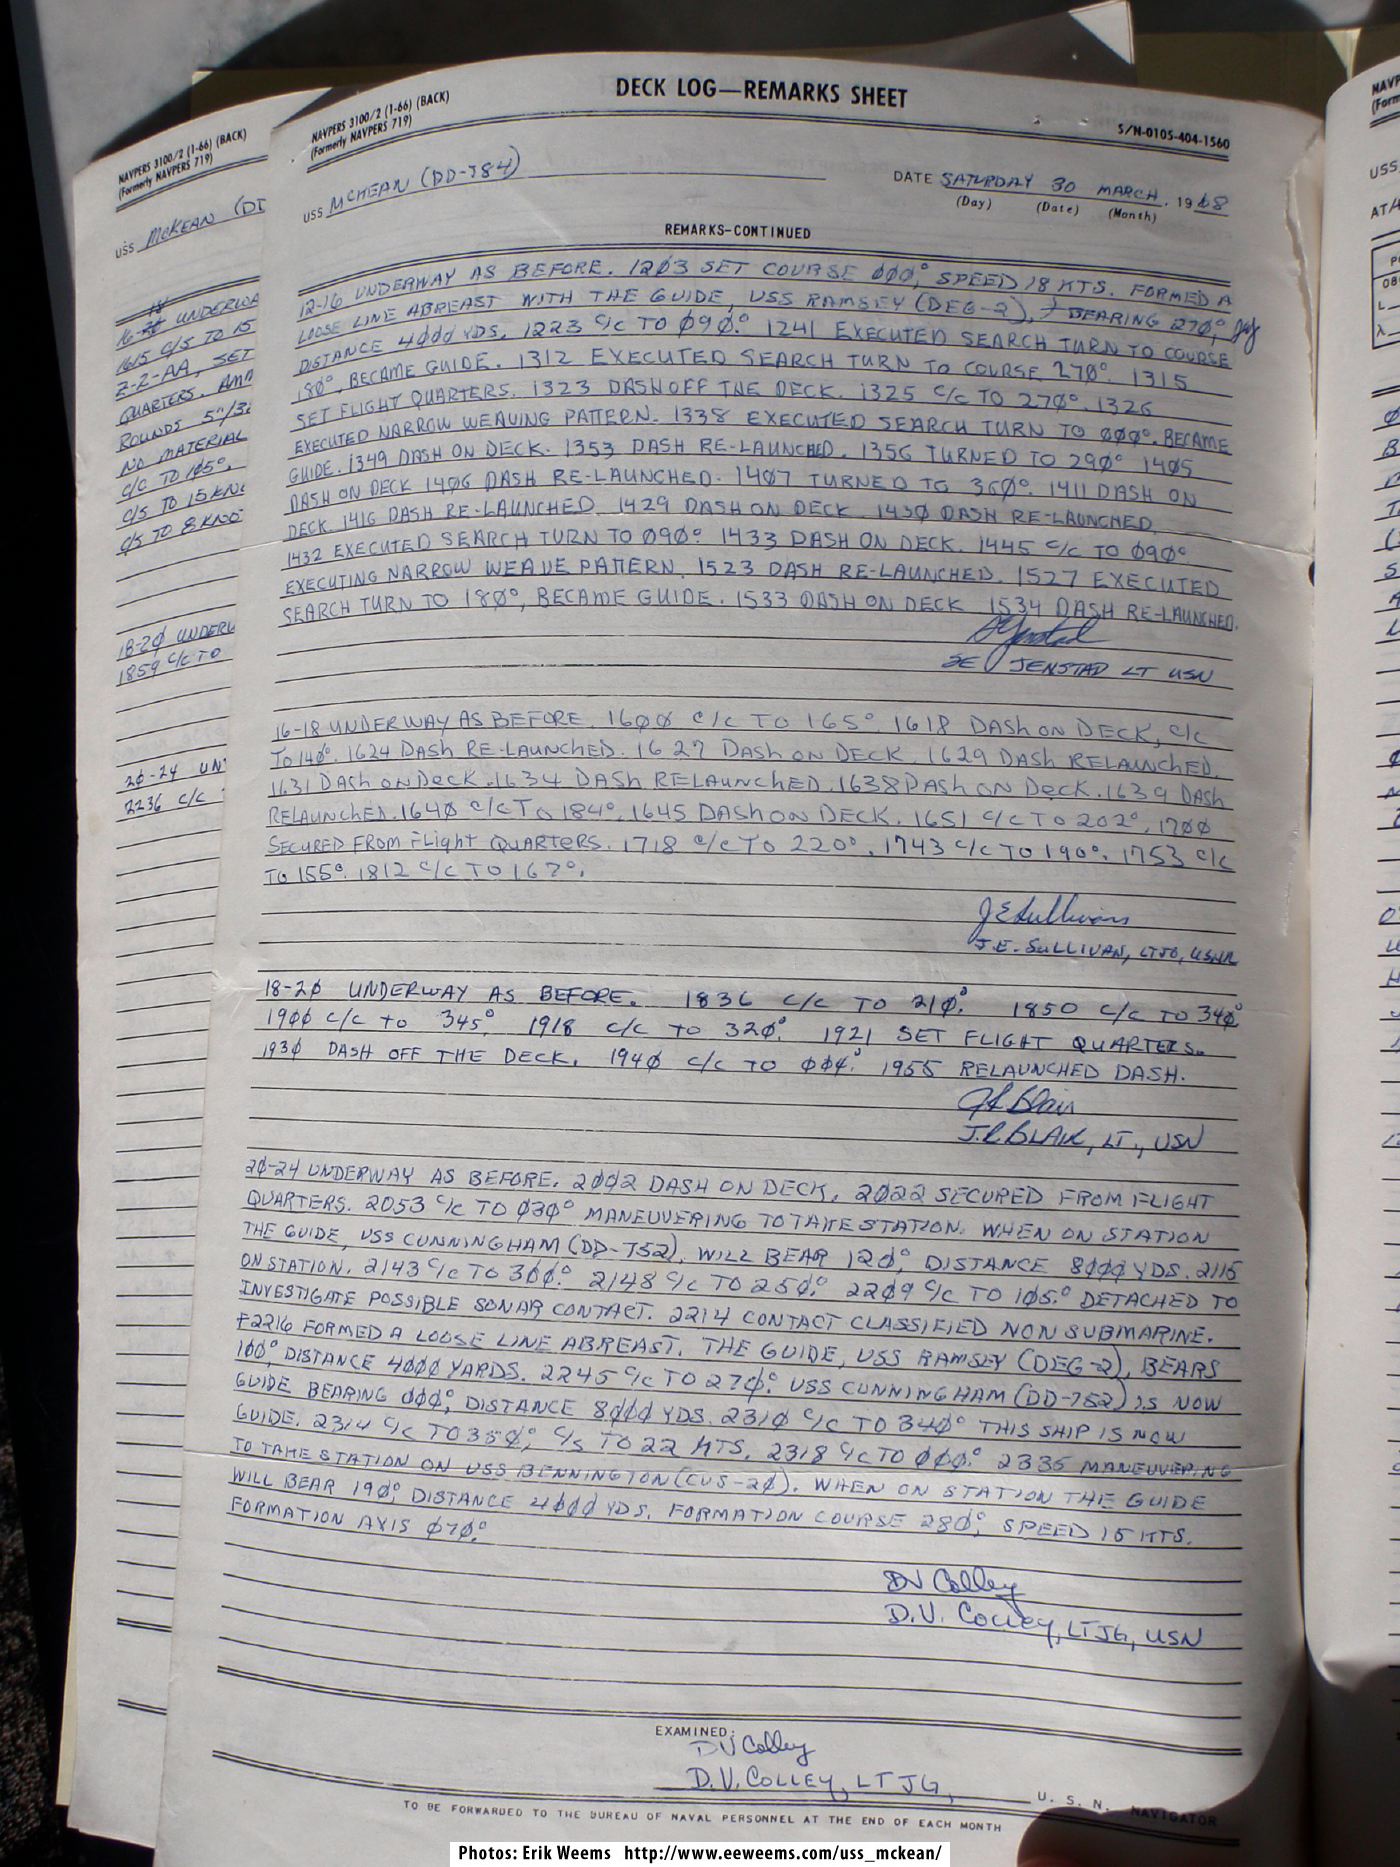 DECK LOG—REMARKS SHEET
NAVPERS 3100/2 (1-66) (BACK)
(Formerly NAVPERS 719)
S/N-0105-404-1560
USS MCKEAN (DD-784)
DATE SATURDAY 30 MARCH, 1968
(Day) (Date) (Month)
REMARKS-CONTINUED
12-16 UNDERWAY AS BEFORE. 12Ø3 SET COURSE ØØØ°, SPEED 18 KTS. FORMED A
LOOSE LINE ABREAST WITH THE GUIDE, USS RAMSEY (DEG-2), BEARING 27Ø°,
DISTANCE 4ØØØ YDS, 1223 C/C TO Ø9Ø°. 1241 EXECUTED SEARCH TURN TO COURSE
18Ø°, BECAME GUIDE. 1312 EXECUTED SEARCH TURN TO COURSE 27Ø°. 1315
SET FLIGHT QUARTERS. 1323 DASH OFF THE DECK. 1325 C/C TO 27Ø°. 1326
EXECUTED NARROW WEAVING PATTERN. 1338 EXECUTED SEARCH TURN TO ØØØ°. BECAME
GUIDE. 1349 DASH ON DECK. 1353 DASH RE-LAUNCHED. 1356 TURNED TO 29Ø° 14Ø5
DASH ON DECK 14Ø6 DASH RE-LAUNCHED. 14Ø7 TURNED TO 36Ø°. 1411 DASH ON
DECK. 1416 DASH RE-LAUNCHED. 1429 DASH ON DECK. 143Ø DASH RE-LAUNCHED
1432 EXECUTED SEARCH TURN TO Ø9Ø° 1433 DASH ON DECK. 1445 C/C TO Ø9Ø°
EXECUTING NARROW WEAVE PATTERN. 1523 DASH RE-LAUNCHED. 1527 EXECUTED
SEARCH TURN TO 18Ø°, BECAME GUIDE. 1533 DASH ON DECK 1534 DASH RE-LAUNCHED.
SE JENSTAD LT USN
16-18 UNDERWAY AS BEFORE. 16ØØ C/C TO 165°. 1618 DASH ON DECK, C/C
TO 14Ø°. 1624 DASH RE-LAUNCHED. 1627 DASH ON DECK. 1629 DASH RELAUNCHED.
1631 DASH ON DECK. 1634 DASH RELAUNCHED. 1638 DASH ON DECK. 1639 DASH
RELAUNCHED. 164Ø C/C TO 184°. 1645 DASH ON DECK. 1651 C/C TO 2Ø2°, 17ØØ
SECURED FROM FLIGHT QUARTERS. 1718 C/C TO 22Ø°. 1743 C/C TO 19Ø°. 1753 C/C
TO 155°. 1812 C/C TO 167°.
J E Sullivan
J.E. SULLIVAN, LTJG, USNR
18-2Ø UNDERWAY AS BEFORE. 1836 C/C TO 21Ø°. 185Ø C/C TO 34Ø°
19ØØ C/C TO 345°. 1918 C/C TO 32Ø°. 1921 SET FLIGHT QUARTERS.
193Ø DASH OFF THE DECK. 194Ø C/C TO ØØ4°. 1955 RELAUNCHED DASH.
J R Blair
J.R. BLAIR, LT., USN
2Ø-24 UNDERWAY AS BEFORE. 2ØØ2 DASH ON DECK. 2Ø22 SECURED FROM FLIGHT
QUARTERS. 2Ø53 C/C TO Ø3Ø° MANEUVERING TO TAKE STATION. WHEN ON STATION
THE GUIDE, USS CUNNINGHAM (DD-752), WILL BEAR 12Ø°, DISTANCE 8ØØØ YDS. 2115
ON STATION. 2143 C/C TO 3ØØ°. 2148 C/C TO 25Ø°. 22Ø9 C/C TO 1Ø5°. DETACHED TO
INVESTIGATE POSSIBLE SONAR CONTACT. 2214 CONTACT CLASSIFIED NON SUBMARINE.
2216 FORMED A LOOSE LINE ABREAST. THE GUIDE, USS RAMSEY (DEG-2), BEARS
1ØØ°, DISTANCE 4ØØØ YARDS. 2245 C/C TO 27Ø°. USS CUNNINGHAM (DD-752) IS NOW
GUIDE BEARING ØØØ°, DISTANCE 8ØØØ YDS. 231Ø C/C TO 34Ø° THIS SHIP IS NOW
GUIDE. 2314 C/C TO 35Ø°, C/S TO 22 KTS. 2318 C/C TO ØØØ°. 2336 MANEUVERING
TO TAKE STATION ON USS BENNINGTON (CVS-2Ø). WHEN ON STATION THE GUIDE
WILL BEAR 19Ø°, DISTANCE 4ØØØ YDS. FORMATION COURSE 28Ø°, SPEED 15 KTS.
FORMATION AXIS Ø7Ø°.
DV Colley
D.V. COLLEY, LTJG, USN
EXAMINED:
DV Colley
D.V. COLLEY, LTJG, U. S. N. NAVIGATOR
TO BE FORWARDED TO THE BUREAU OF NAVAL PERSONNEL AT THE END OF EACH MONTH
NAVPERS 3100/2 (1-66) (BACK)
(Formerly NAVPERS 719)
USS McKEAN (DD
UNDERWA
1615 C/S TO 15
Z-2-AA, SET
QUARTERS.
ROUNDS 5"/38
NO MATERIAL
C/C TO 1Ø5°.
C/S TO 15 KNO
C/S TO 8 KNO
18-2Ø UNDERW
1859 C/C TO
2Ø-24 UN
2236 C/C
Photos: Erik Weems http://www.eeweems.com/uss_mckean/